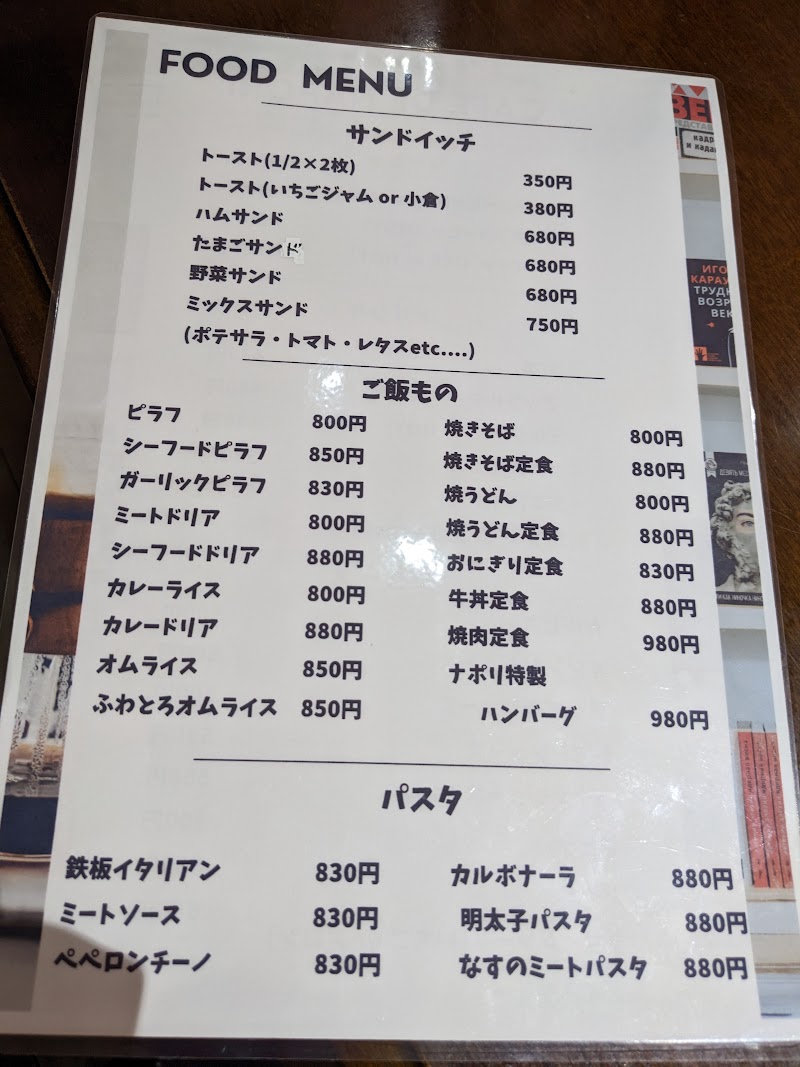 FOOD MENU
サンドイッチ
トースト(1/2×2枚) 350円
トースト(いちごジャム or 小倉) 380円
ハムサンド 680円
たまごサンド 680円
野菜サンド 680円
ミックスサンド 750円
(ポテサラ・トマト・レタスetc....)
ご飯もの
ピラフ 800円
シーフードピラフ 850円
ガーリックピラフ 830円
ミートドリア 800円
シーフードドリア 880円
カレーライス 800円
カレードリア 880円
オムライス 850円
ふわとろオムライス 850円
焼きそば 800円
焼きそば定食 880円
焼うどん 800円
焼うどん定食 880円
おにぎり定食 830円
牛丼定食 880円
焼肉定食 980円
ナポリ特製
ハンバーグ 980円
パスタ
鉄板イタリアン 830円
ミートソース 830円
ペペロンチーノ 830円
カルボナーラ 880円
明太子パスタ 880円
なすのミートパスタ 880円
ИГО
КАРАУ
ТРУДН
ВОЗР
ВЕК